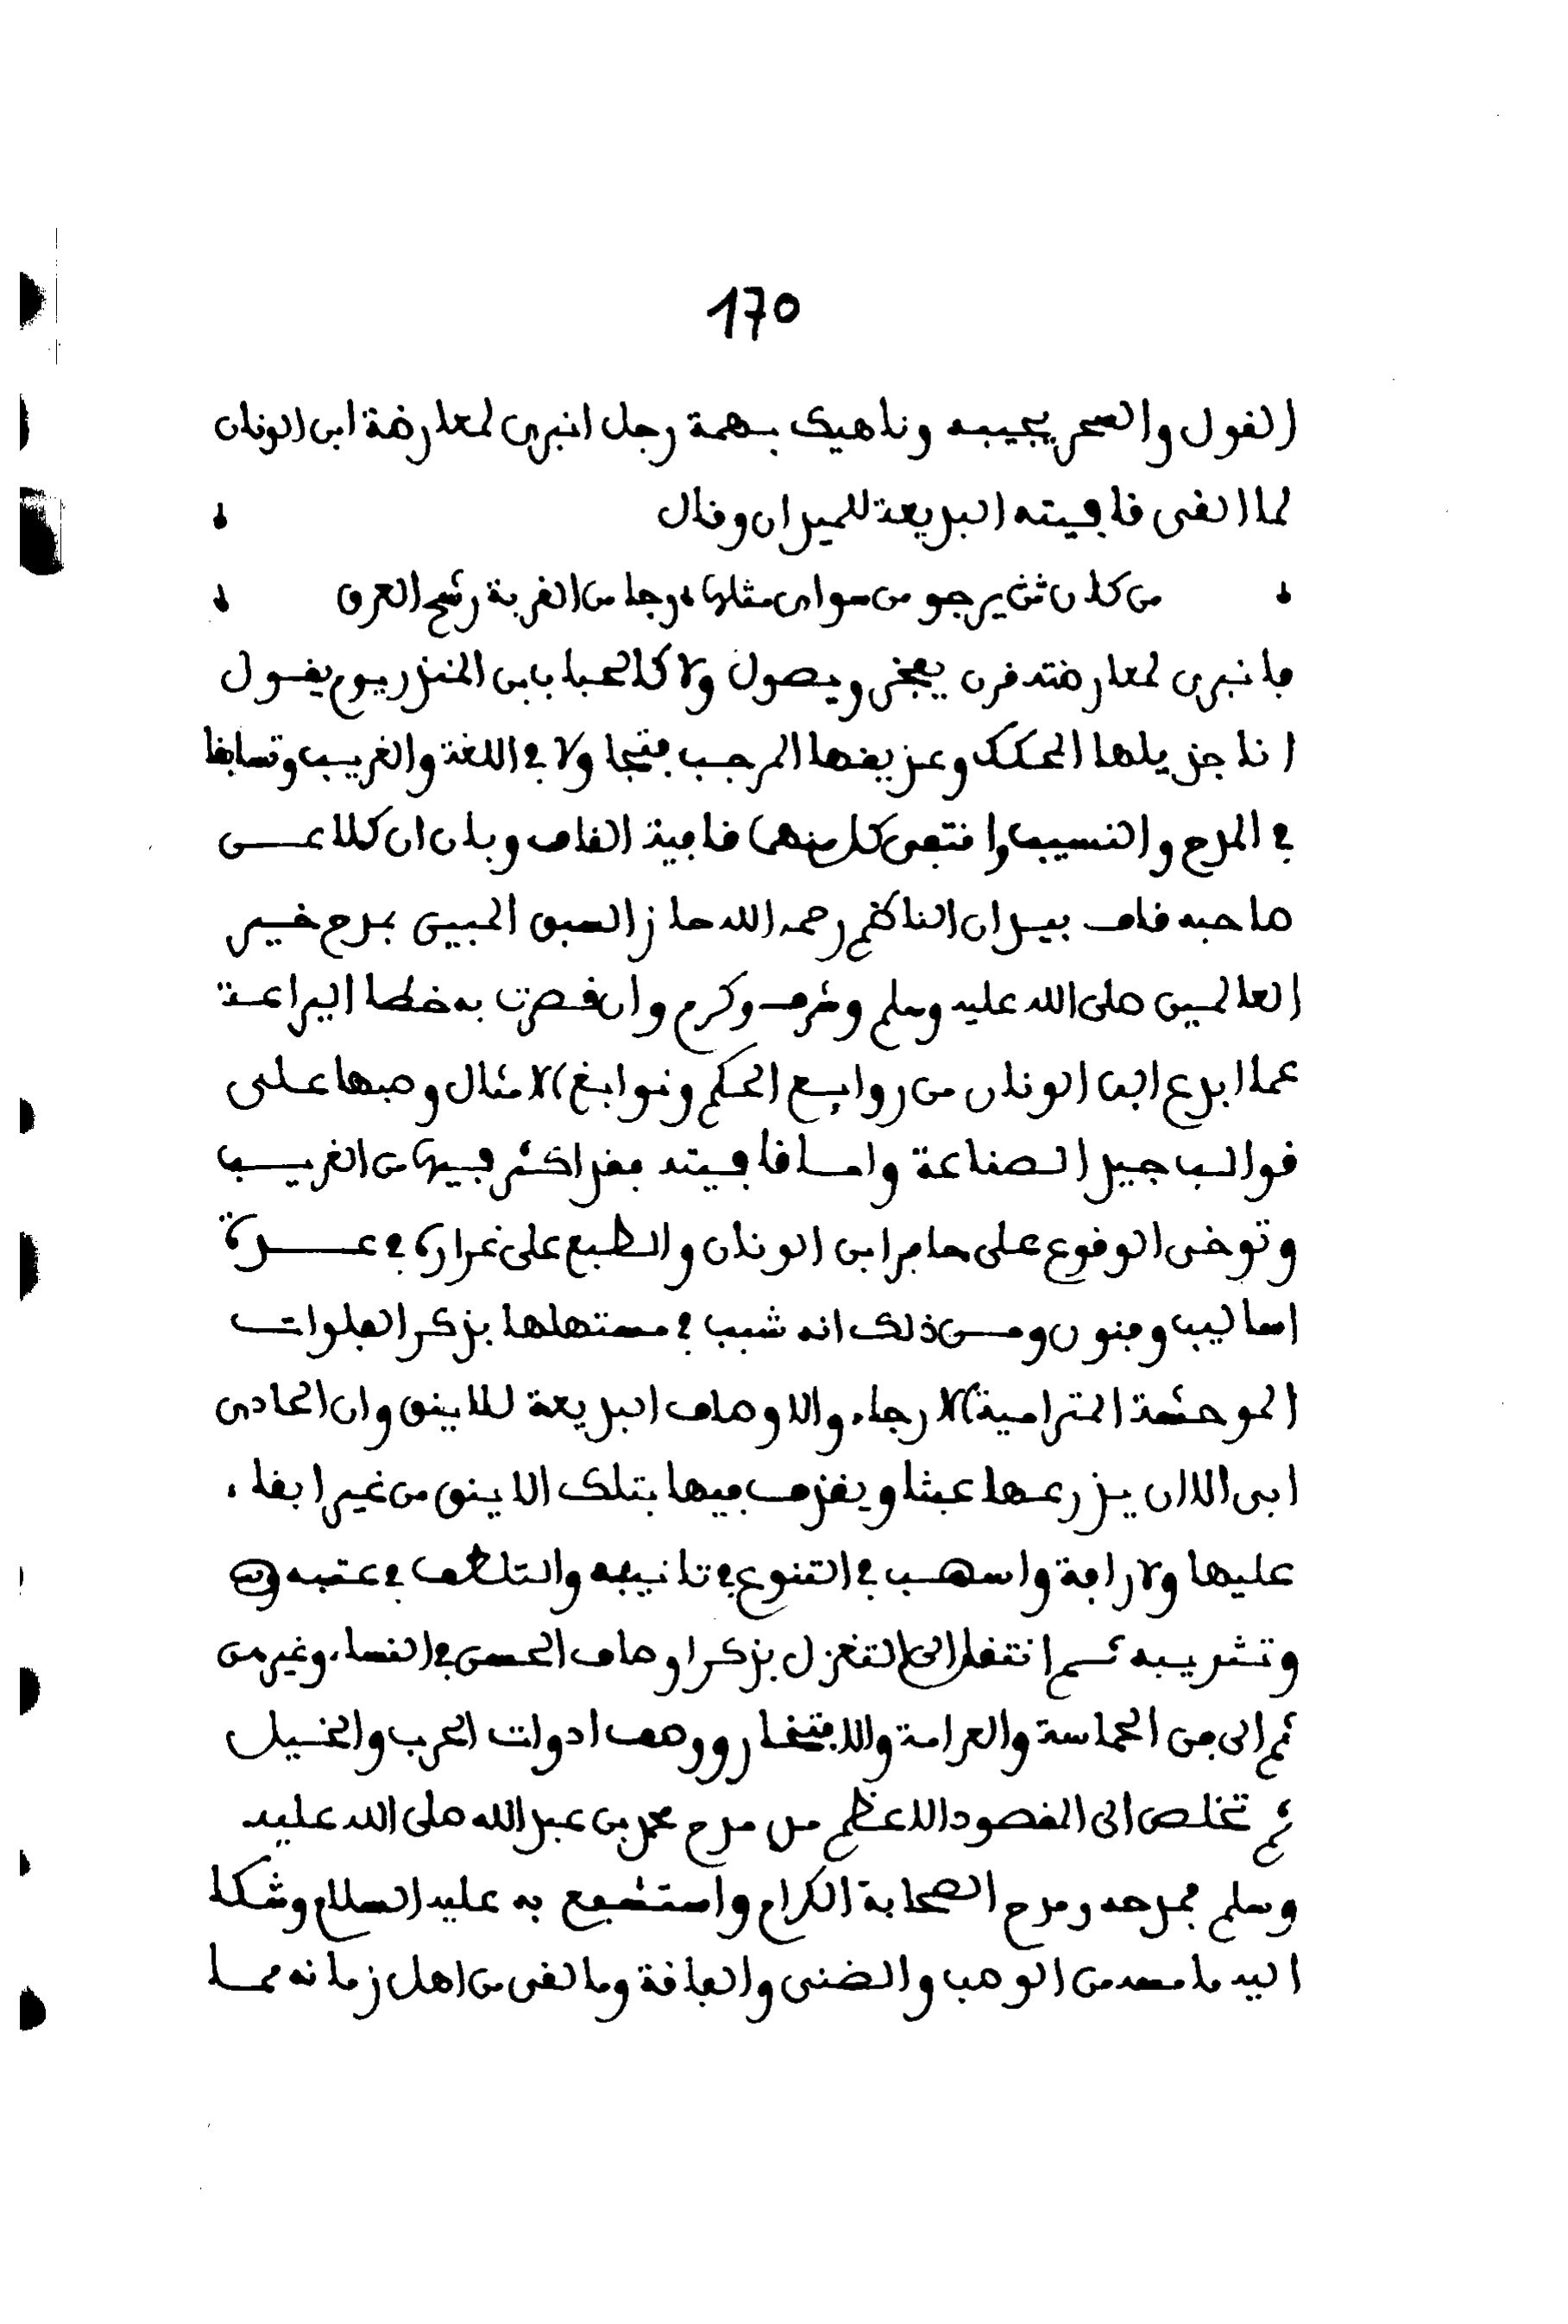 170
القول والسحر يجيبه وناهيك بهمة رجل انبرى لمعارضة ابن الونان
لما القى قافيته البديعة للميدان وقال
من كان يرجو من سواى مثلها ، رجا من القربة رشح العرق
فانبرى لمعارضته قرن يفخر ويصول ولا كالحباب بن المنذر يوم يقول
انا جذيلها المحكك وعذيقها المرجب فتجاولا في اللغة والغريب وتسابقا
في المدح والنسيب واقتفى كل منهما قافية القاف وبان ان كلا عـــن
صاحبه قاف بيد ان الناظم رحمه الله حاز السبق المبين بمدح خير
العالمين صلى الله عليه وسلم وشرف وكرم وان قصرت به خطا اليراعة
عما ابدع ابن الونان من روايع الحكم ونوابغ الامثال وصبها على
قوالب جيد الصناعة واما قافيته فقد اكثر فيها من الغريب
وتوخى الوقوع على حافر ابن الونان والطبع على غراره في عدة
اساليب وفنون ومن ذلك انه شبب في مستهلها بذكر الفلوات
الموحشة المترامية الارجاء والاوصاف البديعة للاينق وان الحادى
ابى الا ان يذرعها عبثا ويقذف فيها بتلك الاينق من غير ابقاء
عليها ولا رافة واسهب في التنوع في تانيبه والتلطف في عتبه
وتثريبه ثم انتقل الى التغزل بذكر اوصاف الحسن في النساء وغيرهن
ثم الى فن الحماسة والعرامة والافتخار ووصف ادوات الحرب والخيل
ثم تخلص الى المقصود الاعظم من مدح محمد بن عبد الله صلى الله عليه
وسلم فمدحه ومدح الصحابة الكرام واستشفع به عليه السلام وشكا
اليه ما مسه من الوصب والضنى والفاقة وما لقى من اهل زمانه مما